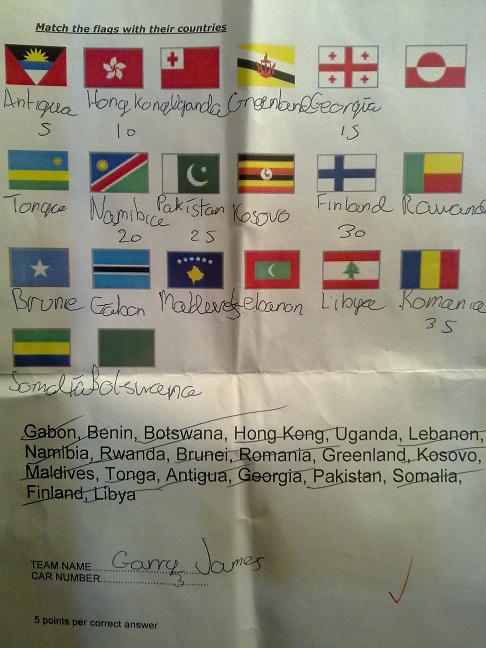 Match the flags with their countries
Antigua Hong Kong Uganda Greenland Georgia
5 10 15
Tonga Namibia Pakistan Kosovo Finland Rawanda
20 25 30
Brune Gabon Maldeves Lebanon Libya Romania
35
Somalia Botswana
Gabon, Benin, Botswana, Hong Kong, Uganda, Lebanon,
Namibia, Rwanda, Brunei, Romania, Greenland, Kosovo,
Maldives, Tonga, Antigua, Georgia, Pakistan, Somalia,
Finland, Libya
TEAM NAME.......Garry James
CAR NUMBER.......3
5 points per correct answer